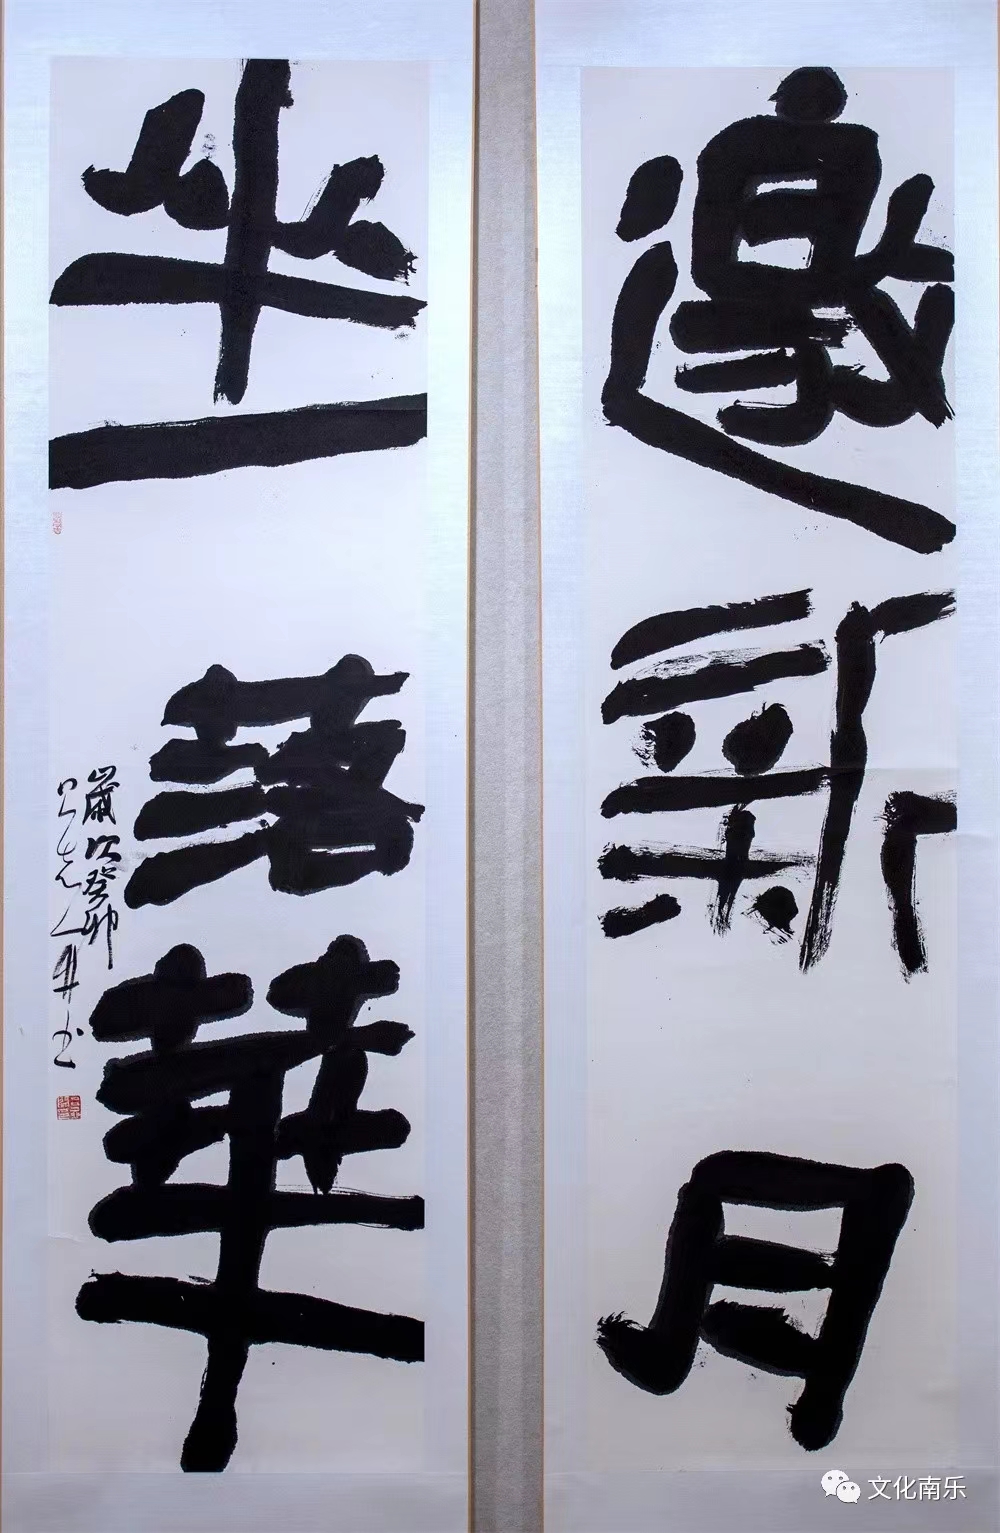 邀新月
坐落華
歲次癸卯
书
文化南乐